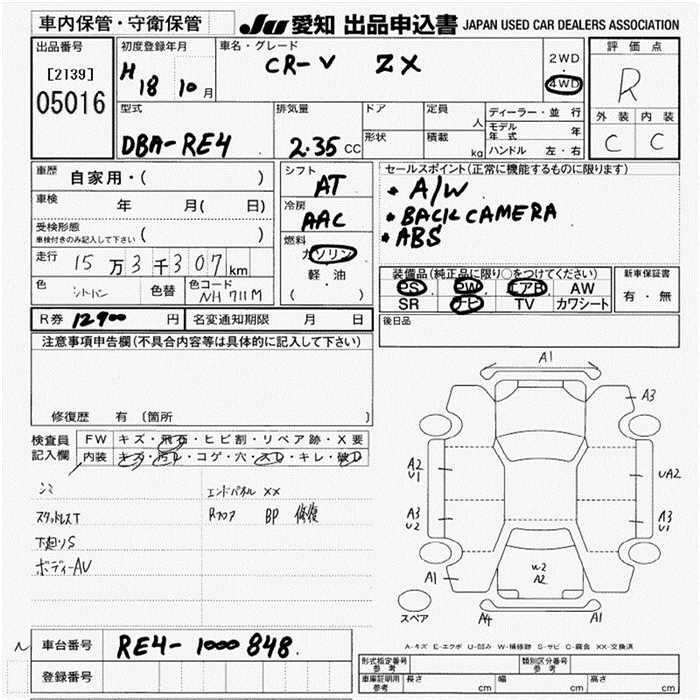 車内保管・守衛保管 JU 愛知 出品申込書 JAPAN USED CAR DEALERS ASSOCIATION
出品番号
[2139]
05016
初度登録年月
H 18 10月
車名・グレード
CR-V ZX
2WD
・
4WD
評価点
R
外装 内装
C C
型式
DBA-RE4
排気量
2.35 CC
ドア
形状
定員 人
積載 kg
ディーラー・並行
モデル年式 年
ハンドル 左・右
車歴 自家用・( )
車検 年 月( 日)
受検形態
車検付きのみ記入して下さい ( )
走行 15万3千307km
色 シトバン 色替
色コード NH711M
R券 12900 円
名変通知期限 月 日
シフト
AT
冷房
AAC
燃料
ガソリン
軽油
( )
セールスポイント(正常に機能するものに限ります)
・A/W
・BACK CAMERA
・ABS
装備品(純正品に限り○をつけてください)
PS PW エアB AW
SR ナビ TV カワシート
新車保証書
有・無
後日品
注意事項申告欄(不具合内容等は具体的に記入して下さい)
修復歴 有 (箇所
検査員
記入欄
FW キズ・飛石・ヒビ割・リペア跡・X要
内装 キズ・汚れ・コゲ・穴・スレ・キレ・破れ
シミ
スタッドレスT
下廻りS
ボディーAV
エンドパネル XX
Rフロア BP 修復
A1
A3
A2
U1
UA2
A3
U2
A3
U1
W2
A2
A1
A4
A1
スペア
A-キズ E-エクボ U-凹み W-補修跡 S-サビ C-腐食 XX-交換済
車台番号 RE4-1000848
登録番号
形式指定番号
参考
類別区分番号
参考
車庫証明用
参考
長さ cm 幅 cm 高さ cm